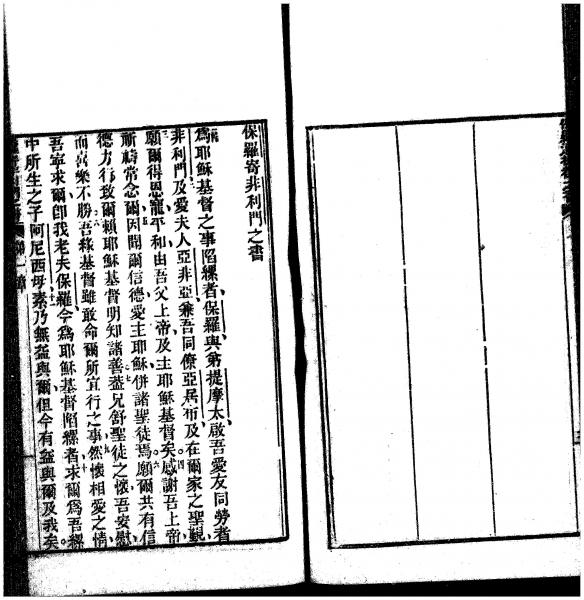 保羅寄非利門之書
爲耶穌基督之事陷縲者保羅與弟提摩太啟吾愛友同勞者
非利門及愛夫人亞非亞兼吾同僚亞居布及在爾家之聖覲
願爾得恩寵平和由吾父上帝及主耶穌基督矣感謝吾上帝
祈禱常念爾因聞爾信德愛主耶穌併諸聖徒焉願爾共有信
德力行致爾賴耶穌基督明知諸善蓋兄舒聖徒之懷吾安慰
而喜樂不勝吾緣基督雖敢命爾所宜行之事然懷相愛之情
吾寧求爾卽我老夫保羅今爲耶穌基督陷縲者求爾爲吾縲
中所生之子阿尼西母素乃無益與爾但今有益與爾及我矣
第一章